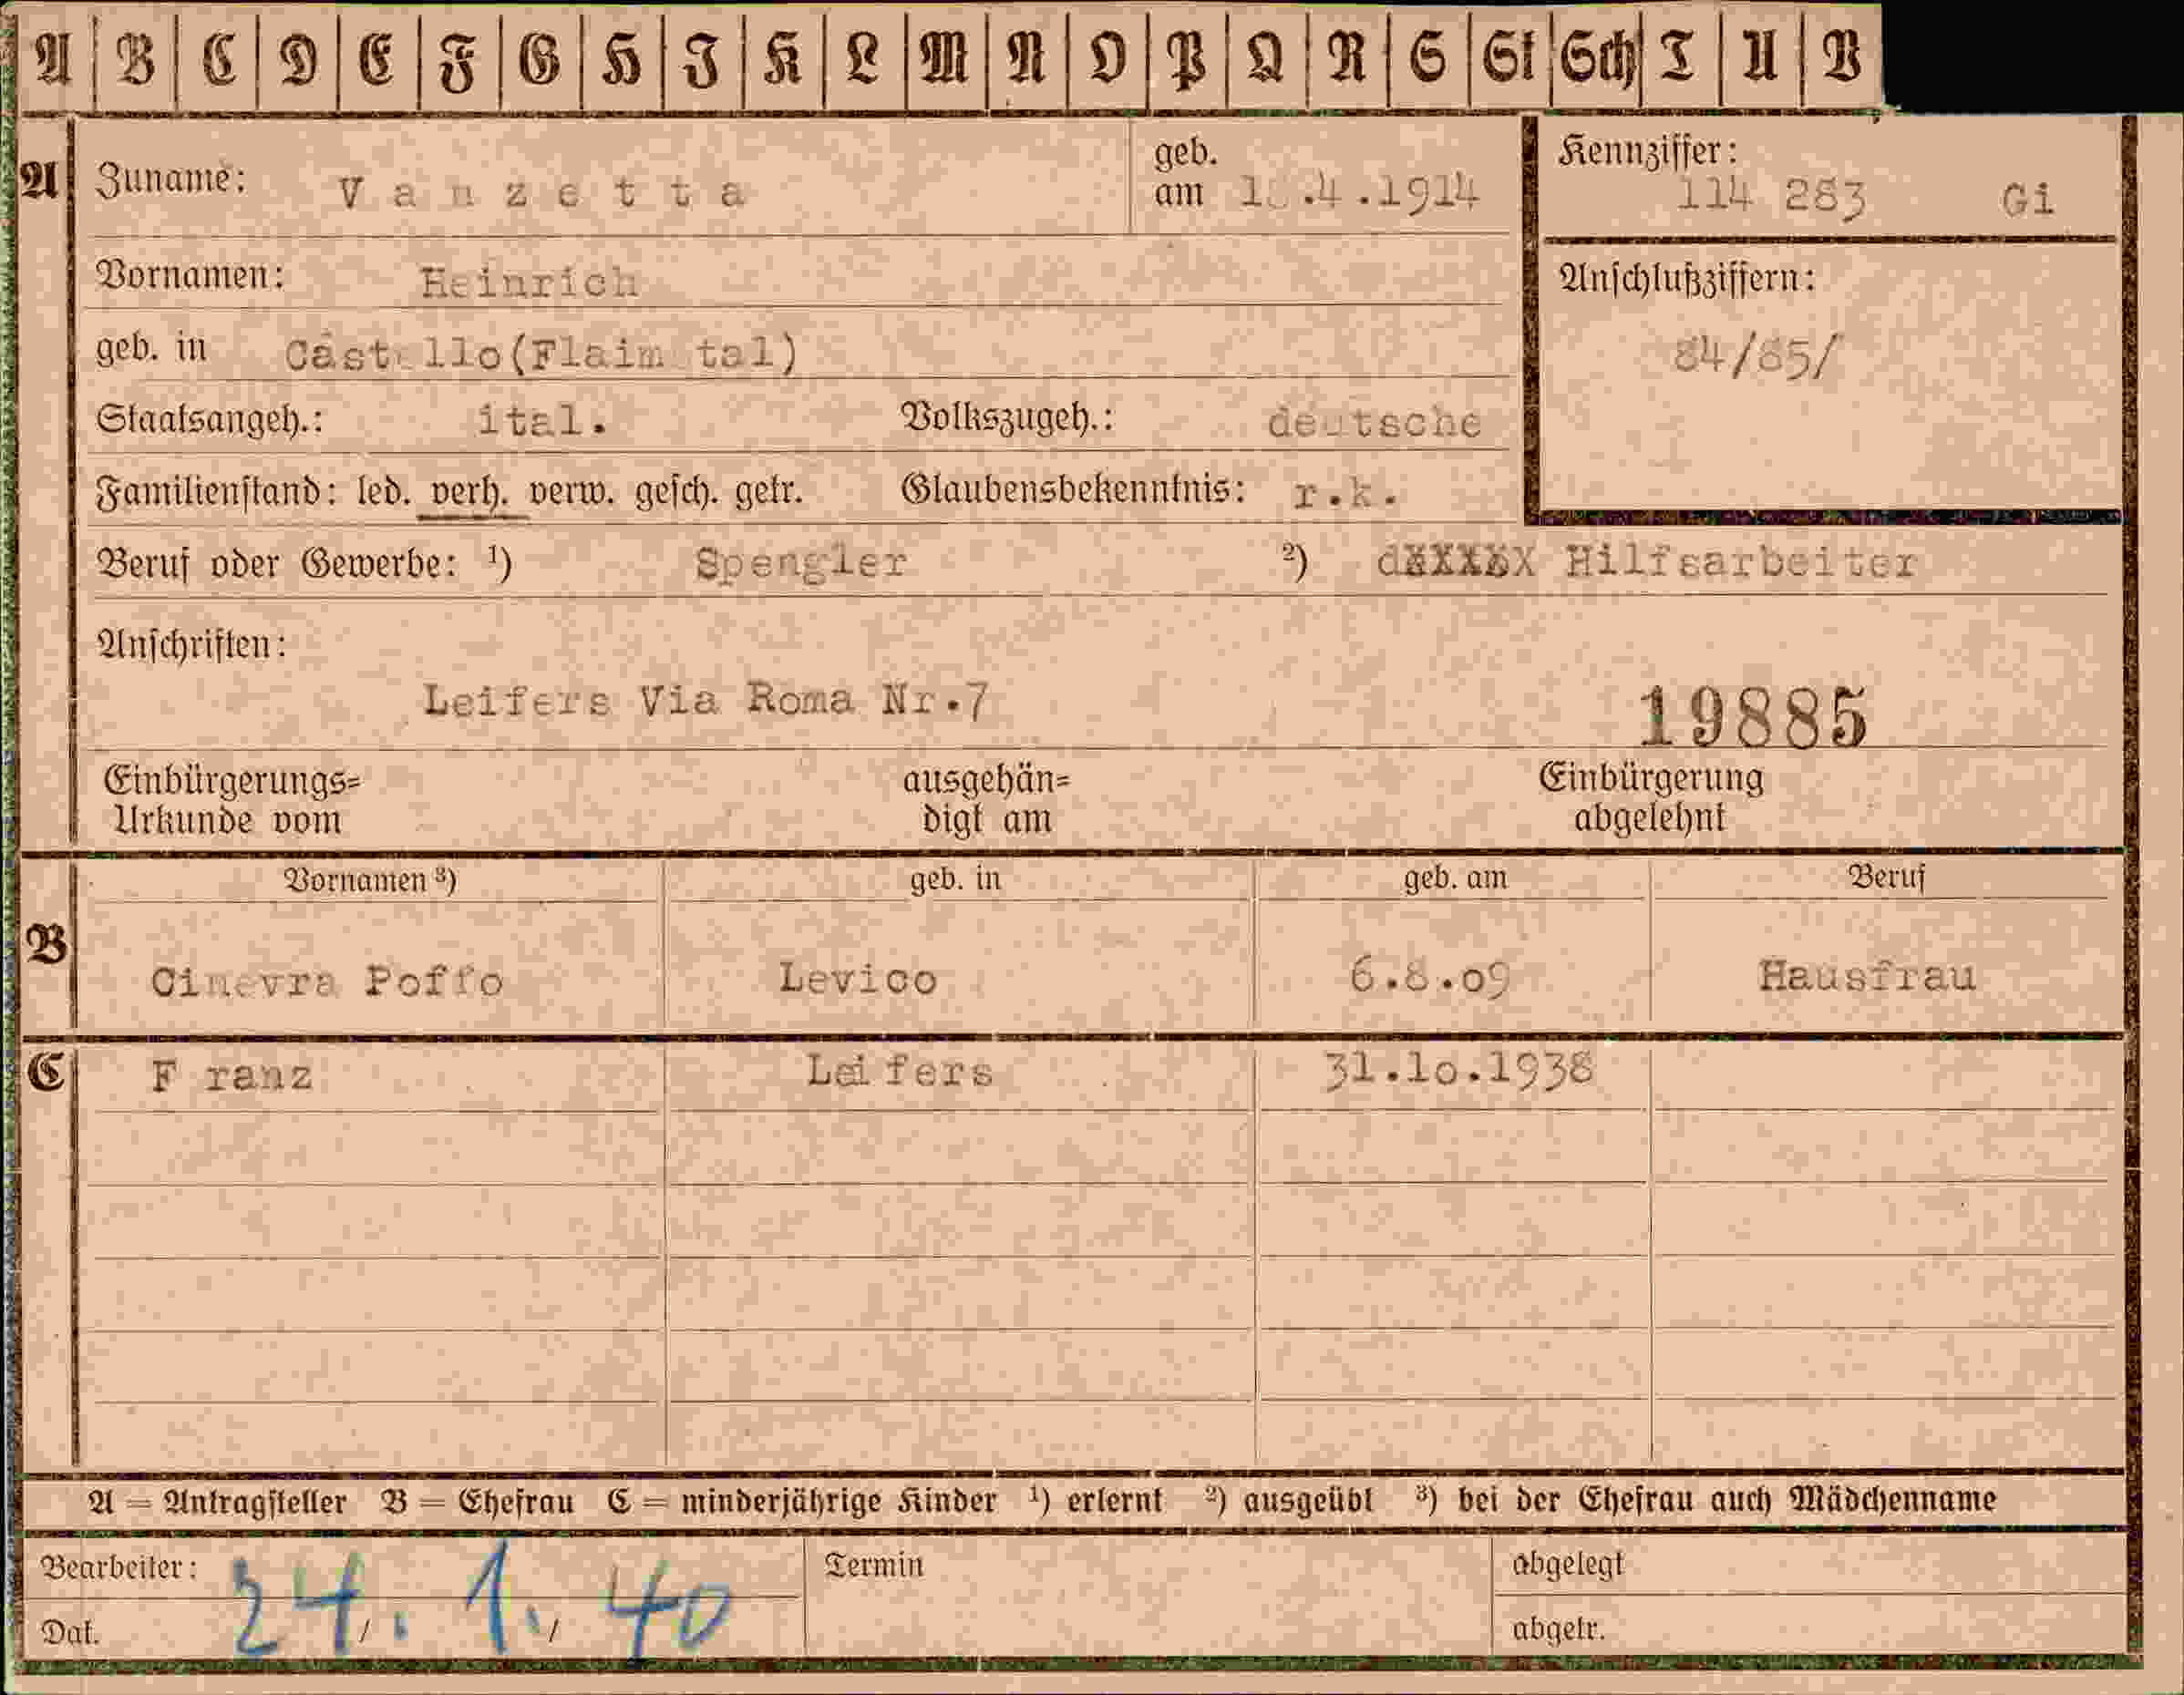 A B C D E F G H I K L M N O P Q R S St Sch T U V
A Zuname: Vanzetta geb. am .4.1914 Kennziffer: 114 283 Gi
Vornamen: Heinrich Anschlußziffern:
geb. in Castello(Flaim tal) 84/85/
Staatsangeh.: ital. Volkszugeh.: deutsche
Familienstand: led. verh. verw. gesch. getr. Glaubensbekenntnis: r.k.
Beruf oder Gewerbe: ¹) Spengler ²) Hilfsarbeiter
Anschriften:
Leifers Via Roma Nr.7 19885
Einbürgerungs= ausgehän= Einbürgerung
Urkunde vom digt am abgelehnt
Vornamen ³) geb. in geb. am Beruf
B Ginevra Poffo Levico 6.8.09 Hausfrau
C F ranz Leifers 31.10.1938
A = Antragsteller B = Ehefrau C = minderjährige Kinder ¹) erlernt ²) ausgeübt ³) bei der Ehefrau auch Mädchenname
Bearbeiter: Termin abgelegt
Dat. 24. 1. 40 abgetr.